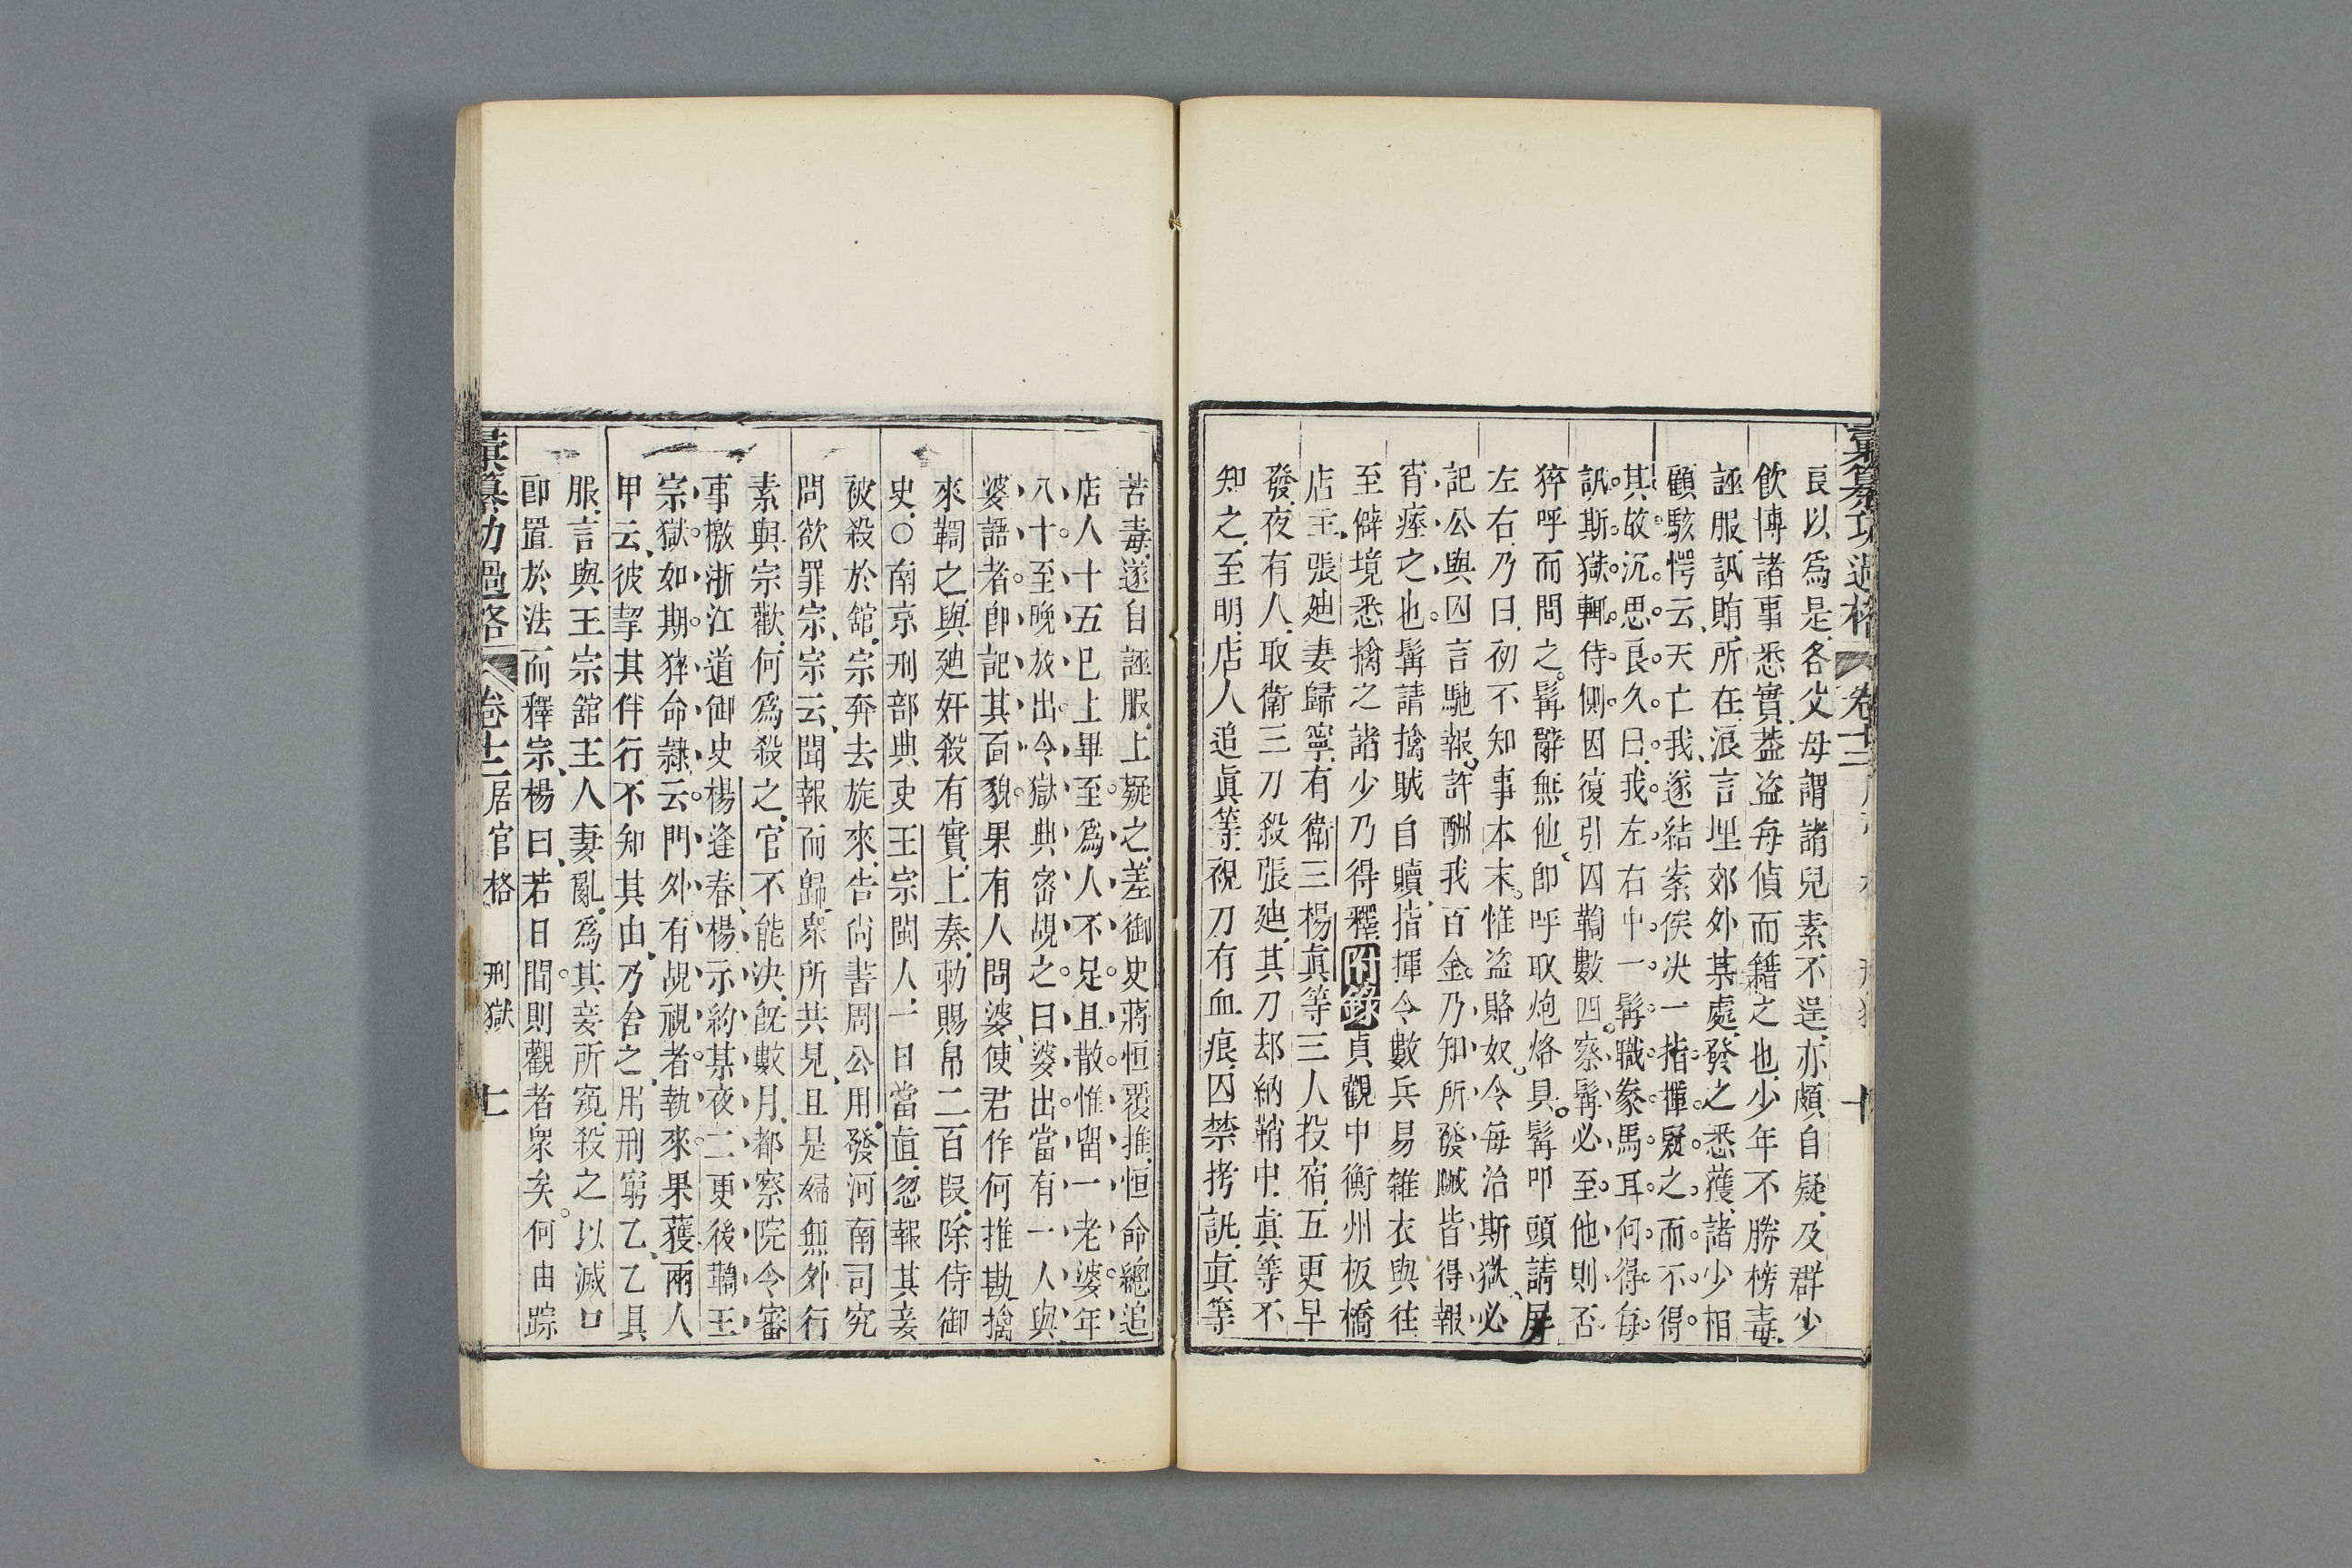 彙纂功過格 卷十二
良以爲是各父母謂諸兒素不逞亦頗自疑及群少
飲博諸事悉實葢盜每偵而籍之也少年不勝榜毒
誣服訊賄所在浪言埋郊外某處發之悉獲諸少相
顧駭愕云天亡我遂結案俟決一指揮疑之而不得
其故沉思良久曰我左右中一髯職豢馬耳何得每
訊斯獄輒侍側因復引囚鞫數四察髯必至他則否
猝呼而問之髯辭無他卽呼取炮烙具髯叩頭請屏
左右乃曰初不知事本末惟盜賂奴令每治斯獄必
記公與囚言馳報許酬我百金乃知所發贓皆得報
宵瘞之也髯請擒賊自贖指揮令數兵易雜衣與往
至僻境悉擒之諸少乃得釋附錄貞觀中衡州板橋
店主張廸妻歸寧有衛三楊眞等三人投宿五更早
發夜有人取衛三刀殺張廸其刀却納鞘中眞等不
知之至明店人追眞等視刀有血痕囚禁拷訊眞等
苦毒遂自誣服上疑之差御史蔣恒覆推恒命總追
店人十五巳上畢至爲人不足且散惟留一老婆年
八十至晚放出令獄典密覘之曰婆出當有一人與
婆語者卽記其面貌果有人問婆使君作何推勘擒
來鞫之與廸妻奸殺有實上奏勅賜帛二百段除侍御
史○南京刑部典吏王宗閩人一日當直忽報其妾
被殺於舘宗奔去旋來告尚書周公用發河南司究
問欲罪宗宗云聞報而歸衆所共見且是婦無外行
素與宗歡何爲殺之官不能決旣數月都察院令審
事檄浙江道御史楊逢春楊示約某夜二更後鞫王
宗獄如期猝命隸云門外有覘視者執來果獲兩人
甲云彼挈其伴行不知其由乃舍之用刑窮乙乙具
服言與王宗舘主人妻亂爲其妾所窺殺之以滅口
卽置於法而釋宗楊曰若日間則觀者衆矣何由踪
彙纂功過格 卷十二 居官格 刑獄 十